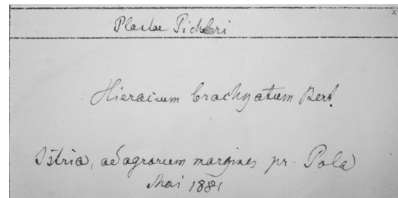 Plantae Pichleri
Hieracium brachyatum Bert.
Istria, ad agrorum margines pr. Pola
Mai 1881